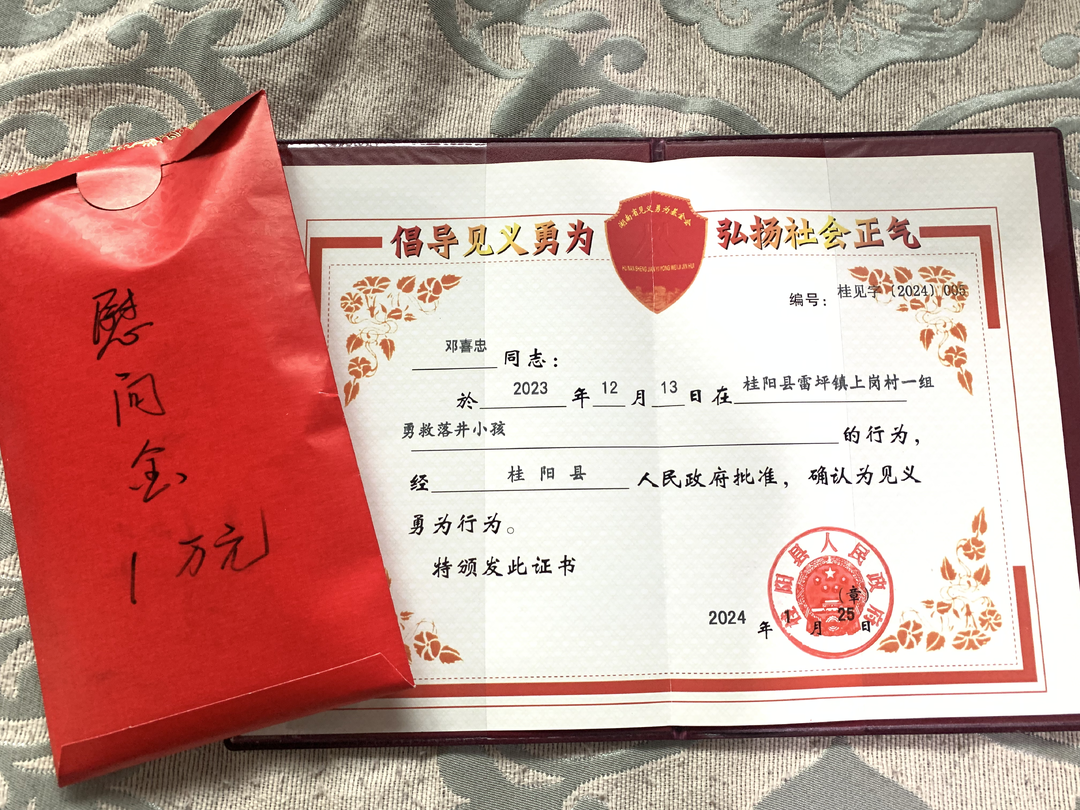 慰问金
1万元
倡导见义勇为
湖南省见义勇为基金会
HU NAN SHENG JIAN YI YONG WEI JI JIN HUI
弘扬社会正气
编号：桂见字（2024）005
邓喜忠同志：
於2023年12月13日在桂阳县雷坪镇上岗村一组
勇救落井小孩的行为，
经桂阳县人民政府批准，确认为见义
勇为行为。
特颁发此证书
桂阳县人民政府
（章）
2024年1月25日